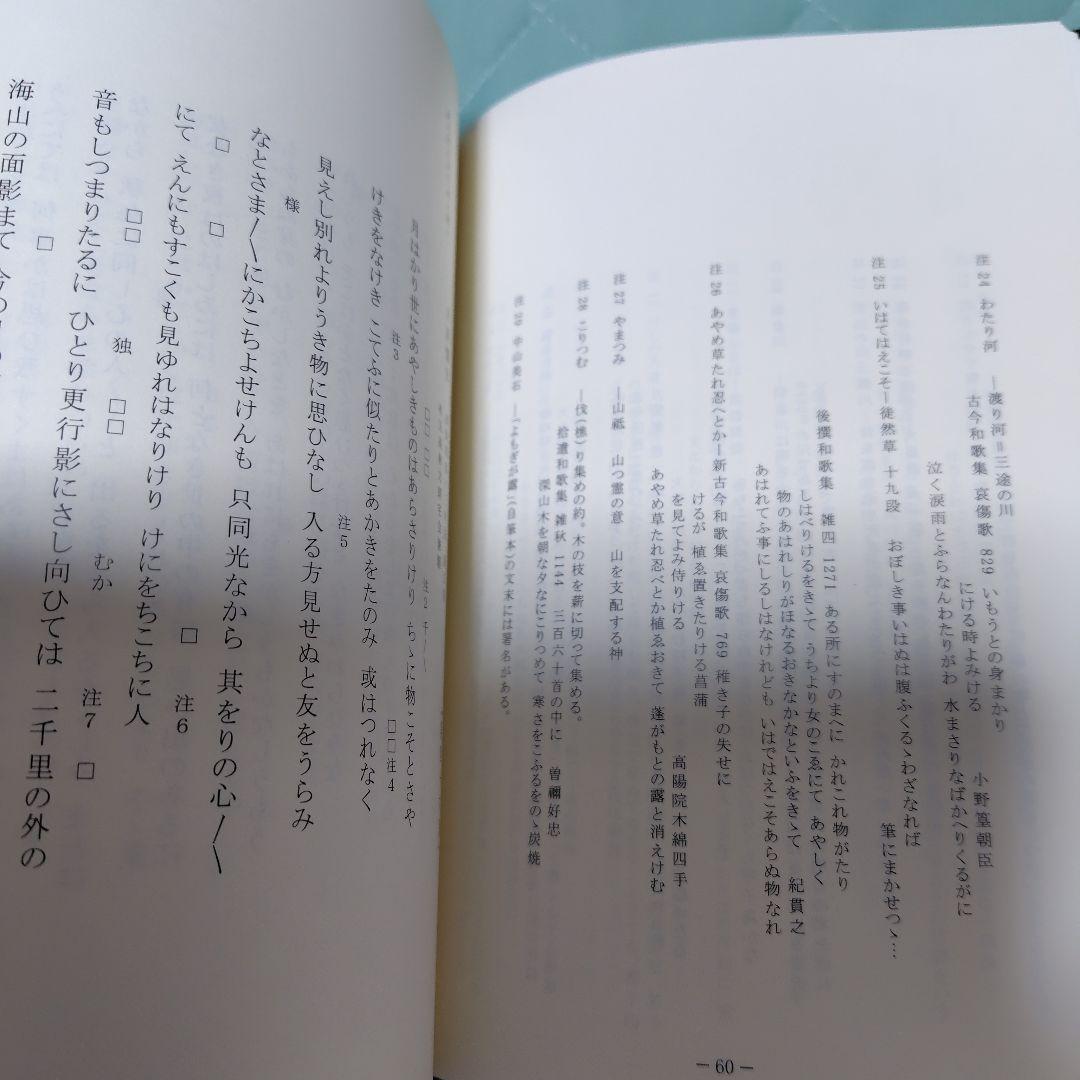 注24 わたり河 ―渡り河＝三途の川
古今和歌集 哀傷歌 829 いもうとの身まかり
にける時よみける 小野篁朝臣
泣く涙雨とふらなんわたりがわ 水まさりなばかへりくるがに
注25 いはてはえこそ―徒然草 十九段 おぼしき事いはぬは腹ふくるゝわざなれば
筆にまかせつゝ…
後撰和歌集 雑四 1271 ある所にすのまへに かれこれ物がたり
しはべりけるをきゝて うちより女のこゑにて あやしく
物のあはれしりがほなるおきなかなといふをきゝて 紀貫之
あはれてふ事にしるしはなけれども いはではえこそあらぬ物なれ
注26 あやめ草たれ忍へとか―新古今和歌集 哀傷歌 769 稚き子の失せに
けるが 植ゑ置きたりける菖蒲
を見てよみ侍りける 高陽院木綿四手
あやめ草たれ忍べとか植ゑおきて 蓬がもとの露と消えけむ
注27 やまつみ ―山祗 山つ霊の意 山を支配する神
注28 こりつむ ―伐(樵)り集めの約。木の枝を薪に切って集める。
拾遺和歌集 雑秋 1141 三百六十首の中に 曽禰好忠
深山木を朝な夕なにこりつめて 寒さをこふるをのゝ炭焼
注29 中山美石 ―「よもぎが露」(自筆本)の文末には署名がある。
―60―
月はかり世にあやしきものはあらさりけり ちゝに物こそとさや
注2 千〳〵
けきをなけき こてふに似たりとあかきをたのみ 或はつれなく
注3
□□注4
見えし別れよりうき物に思ひなし 入る方見せぬと友をうらみ
注5
様
なとさま〳〵にかこちよせけんも 只同光なから 其をりの心〳〵
□
にて えんにもすこくも見ゆれはなりけり けにをちこちに人
□
□
注6
音もしつまりたるに ひとり更行影にさし向ひては 二千里の外の
□□
独
□□
むか
注7
□
海山の面影まて 今の